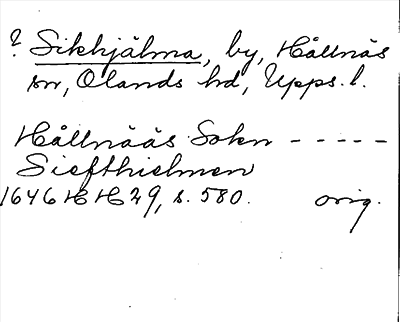 ? Sikhjälma, by, Hållnäs
sn, Olands hd, Upps. l.
Hållnääs Sokn - - - - -
Siefthielmen
1646 HH 29, s. 580. orig.